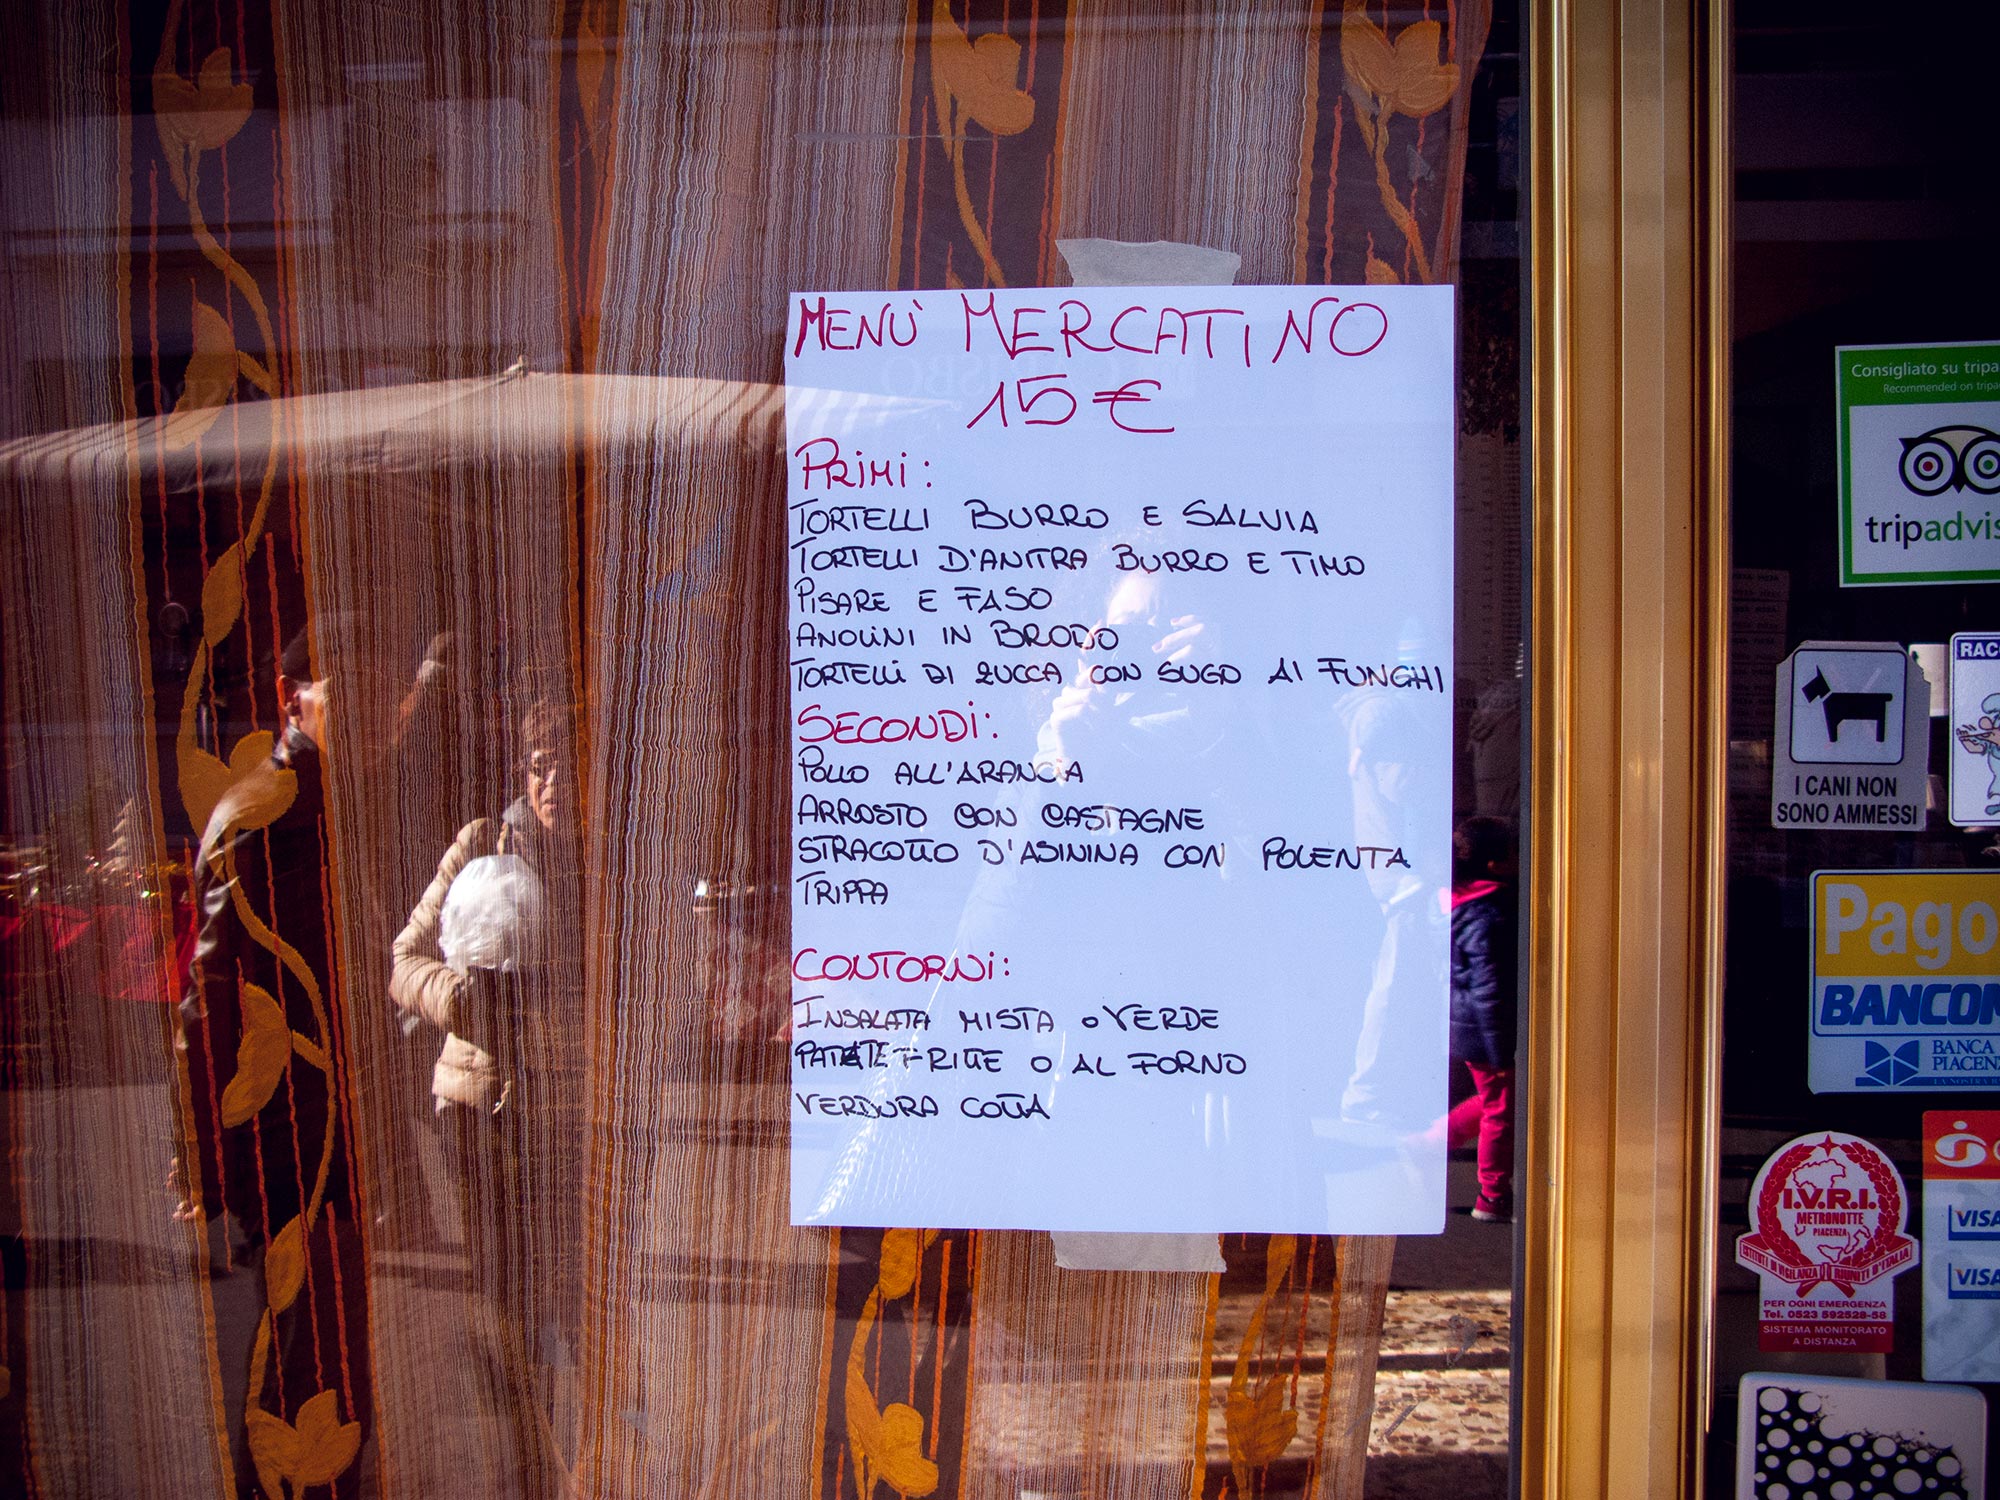 MENÙ MERCATINO
15€
PRIMI:
TORTELLI BURRO E SALVIA
TORTELLI D'ANITRA BURRO E TIMO
PISARE E FASO
ANOLINI IN BRODO
TORTELLI DI ZUCCA CON SUGO AI FUNGHI
SECONDI:
POLLO ALL'ARANCIA
ARROSTO CON CASTAGNE
STRACOTTO D'ASININA CON POLENTA
TRIPPA
CONTORNI:
INSALATA MISTA O VERDE
PATATE FRITTE O AL FORNO
VERDURA COTTA
Consigliato su tripa
Recommended on tripa
tripadvis
RAC
I CANI NON
SONO AMMESSI
Pago
BANCOM
BANCA
PIACEN
I.V.R.I.
METRONOTTE
PIACENZA
ISTITUTI DI VIGILANZA RIUNITI D'ITALIA
PER OGNI EMERGENZA
Tel. 0523 592528-58
SISTEMA MONITORATO
A DISTANZA
VISA
VISA